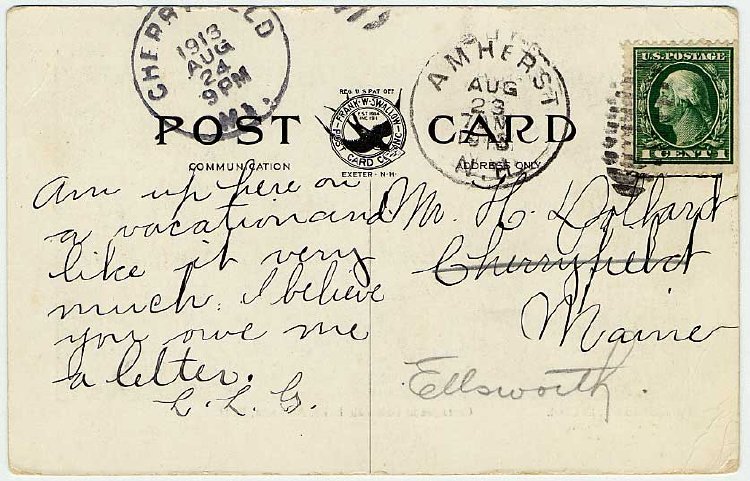 CHERRYFIELD
1913
AUG
24
9 PM
REG. U.S. PAT. OFF.
FRANK·W·SWALLOW
POST CARD CO. INC.
EXETER - N·H·
AMHERST
AUG
23
1913
U.S. POSTAGE
1 CENT 1
POST CARD
COMMUNICATION
ADDRESS ONLY
Am up here on
a vacation and
like it very
much. I believe
you owe me
a letter.
L. L. G.
Mr. H. Dollard
Cherryfield
Maine
Ellsworth.